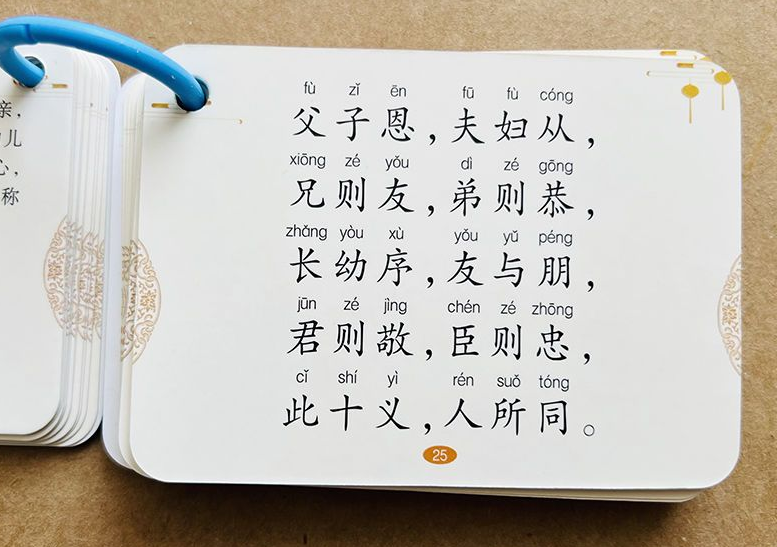 亲，
儿
心，
称
fù zǐ ēn fū fù cóng
父子恩，夫妇从，
xiōng zé yǒu dì zé gōng
兄则友，弟则恭，
zhǎng yòu xù yǒu yǔ péng
长幼序，友与朋，
jūn zé jìng chén zé zhōng
君则敬，臣则忠，
cǐ shí yì rén suǒ tóng
此十义，人所同。
25